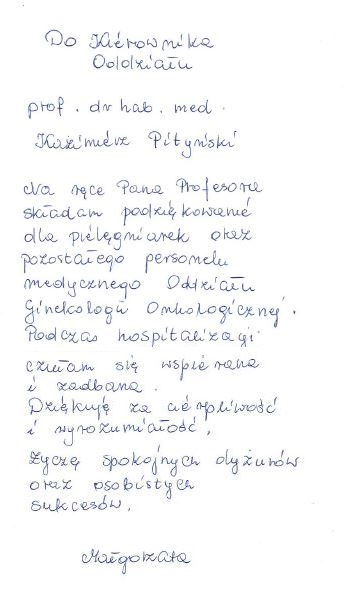 Do Kierownika
Oddziału
prof. dr hab. med.
Kazimierz Pityński
Na ręce Pana Profesora
składam podziękowanie
dla pielęgniarek oraz
pozostałego personelu
medycznego Oddziału
Ginekologii Onkologicznej.
Podczas hospitalizacji
czułam się wspierana
i zadbana.
Dziękuję za cierpliwość
i wyrozumiałość,
życzę spokojnych dyżurów
oraz osobistych
sukcesów.
Małgorzata